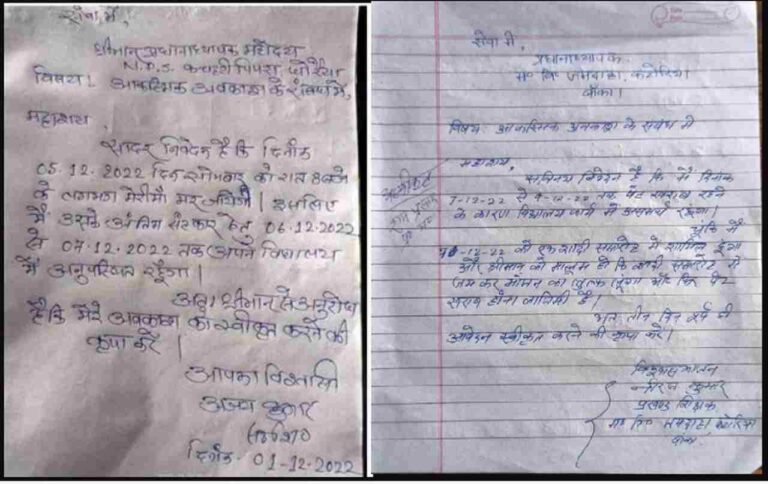 सेवा में,
श्रीमान प्रधानाध्यापक महोदय
N.P.S. कचारी पिपरा, धोरैया
विषय: आकस्मिक अवकाश के संबंध में,
महाशय,
सादर निवेदन है कि दिनांक
05.12.2022 दिन सोमवार को रात 8 बजे
के लगभग मेरी माँ मर जायेगी। इसलिए
मैं उसके अंतिम संस्कार हेतु 06.12.2022
से 07.12.2022 तक अपने विद्यालय
में अनुपस्थित रहूँगा।
अतः श्रीमान से अनुरोध
है कि मेरे अवकाश को स्वीकृत करने की
कृपा करें।
आपका विश्वासी
अजय कुमार
दिनांक- 01-12-2022
सेवा में,
प्रधानाध्यापक
म० वि० जमदाहा, कटोरिया
बाँका।
विषय: आकस्मिक अवकाश के संबंध में
महाशय,
सविनय निवेदन है कि मैं दिनांक
7-12-22 से 9-12-22 तक पेट खराब रहने
के कारण विद्यालय कार्य में असमर्थ रहूँगा।
चूंकि मैं
-12-22 को एक शादी समारोह में शामिल हूंगा
और श्रीमान को मालूम हो कि शादी समारोह में
जम कर भोजन का लुत्फ लूंगा और फिर पेट
खराब होना लाजिमी है।
अतः तीन दिन पूर्व ही
आवेदन स्वीकृत करने की कृपा करें।
विश्वासभाजन
नीरज कुमार
प्रखंड शिक्षक
म० वि० जमदाहा कटोरिया
बांका